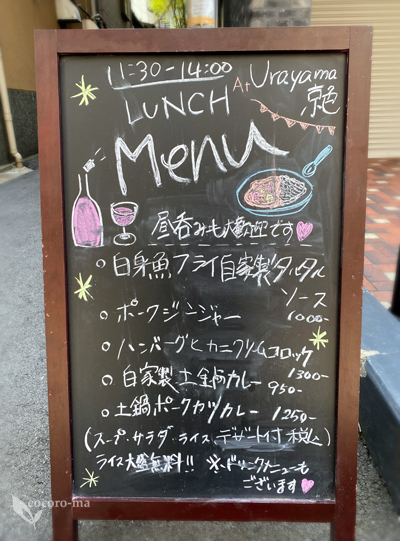 11:30-14:00
LUNCH At Urayama
Menu
昼呑みも大歓迎です
○白身魚フライ自家製タルタル
ソース
1000-
○ポークジンジャー
○ハンバーグとカニクリームコロッケ
1300-
○自家製土鍋カレー 950-
○土鍋ポークカツカレー 1250-
(スープ・サラダ・ライス、デザート付 税込)
ライス大盛無料!! ※ドリンクメニューも
ございます
cocoro-ma